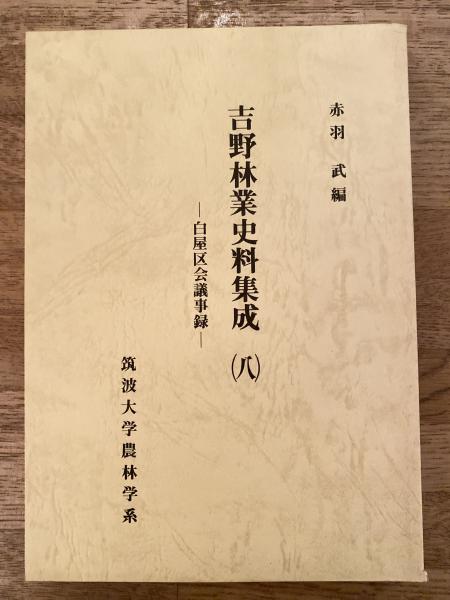 赤羽 武編
吉野林業史料集成(八)
―白屋区会議事録―
筑波大学農林学系